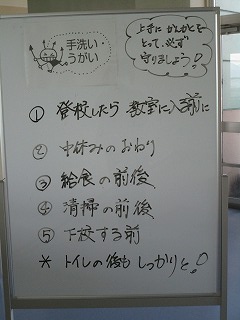 手洗い・
うがい
上手に かんかくを
とって、必ず
守りましょう!
① 登校したら 教室に入る前に
② 中休みのおわり
③ 給食の前後
④ 清掃の前後
⑤ 下校する前
* トイレの後も しっかりと!